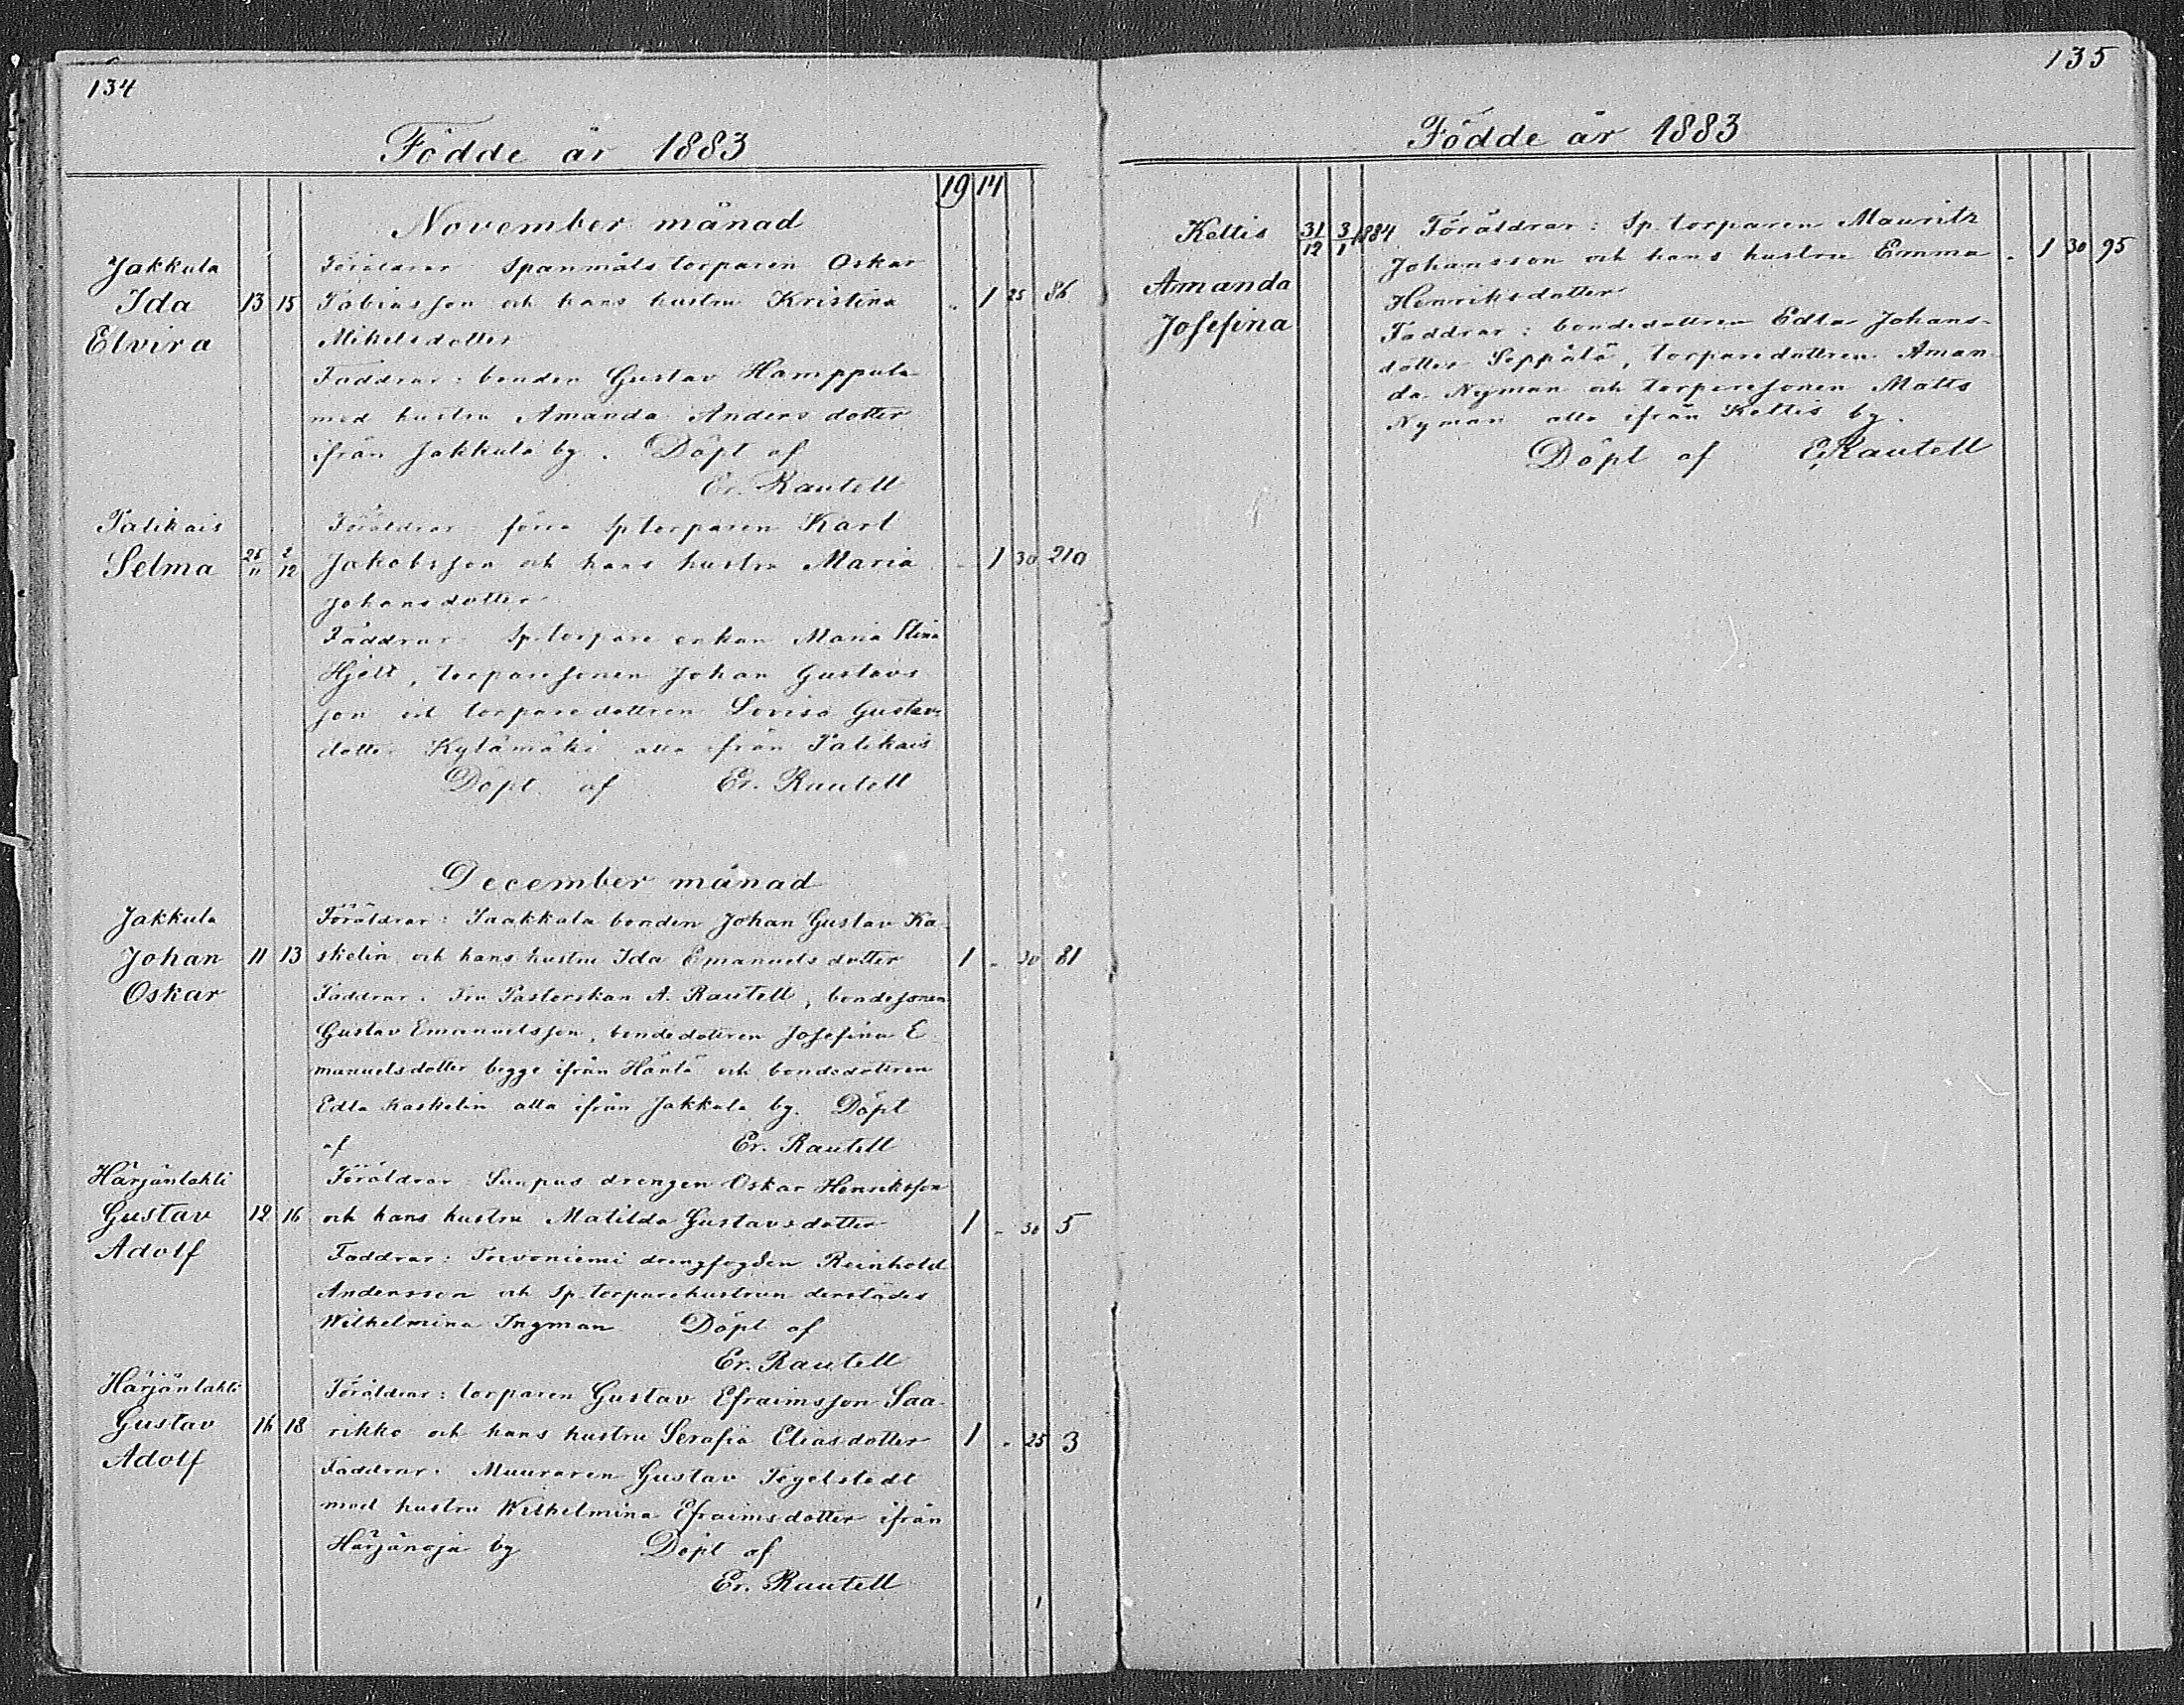 134
Födde år 1883
19 14
November månad
Jakkula Föräldrar Spanmåls torparen Oskar
Ida 13 15 Tobiasson och hans hustru Kristina " 1 25 86
Elvira Mikelsdotter
Faddrar: bonden Gustav Hamppula
med hustru Amanda Anders dotter
ifrån Jakkula by. Döpt af
Er. Rautell
Palikais Föräldrar förra sp torparen Karl
Selma 26/11 2/12 Jakobsson och hans hustru Maria - 1 30 210
Johansdotter
Faddrar Sp. torpare enkan Maria Stina
Hjelt, torparesonen Johan Gustavs
son och torparedottren Lovisa Gustavs
dotter Kylämäki alla ifrån Palikais
Döpt af Er. Rautell
December månad
Jakkula Föräldrar: Saakkala bonden Johan Gustav Ka-
Johan 11 13 skelin och hans hustru Ida Emanuels dotter 1 - 30 81
Oskar Faddrar: Fru Pastorskan A. Rautell, bondesonen
Gustav Emanuelsson, bondedottren Josefina E-
manuelsdotter begge ifrån och bondedottren
Edla Kaskelin alla ifrån Jakkula by. Döpt
af Er. Rautell
Härjänlahti Föräldrar: Sunpus drengen Oskar Henriksson
Gustav 12 16 och hans hustru Matilda Gustavsdotter 1 - 30 5
Adolf Faddrar: drengfogden Reinhold
Andersson och Sp. torparehustrun derstädes
Wilhelmina Ingman Döpt af
Er. Rautell
Härjänlahti Föräldrar: torparen Gustav Efraimsson Saa-
Gustav 16 18 rikko och hans hustru Serafia Eliasdotter 1 - 25 3
Adolf Faddrar: Muuraren Gustav Tegelstedt
med hustru Wilhelmina Efraimsdotter ifrån
Härjänoja by Döpt af
Er. Rautell
135
Födde år 1883
Keltis 31/12 3/1 1884 Föräldrar: Sp. torparen Mauritz
Johansson och hans hustru Emma " 1 30 95
Amanda Henriksdotter
Josefina Faddrar: bondedottren Edla Johans-
dotter Seppälä, torparedottren Aman-
da Nyman och torparesonen Matts
Nyman alla ifrån Keltis by.
Döpt af E. Rautell